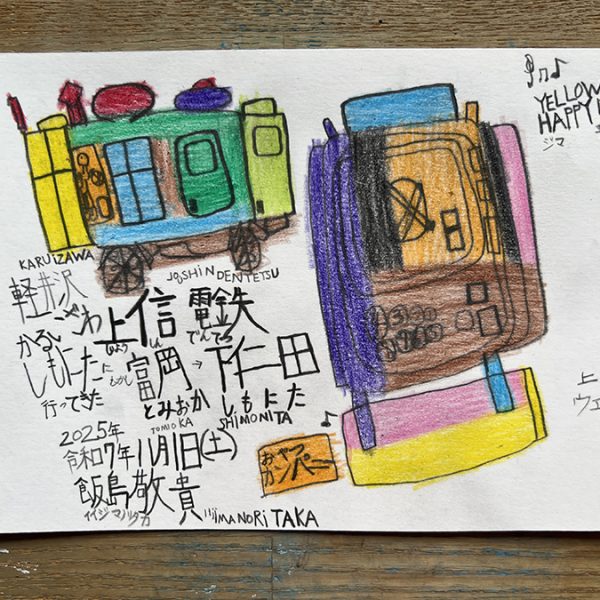 YELLOW
HAPPY
ジマ
KARUIZAWA
JOSHIN DENTETSU
軽井沢
ざわ
上信電鉄
じょうしん でんてつ
かるい
しもにたに
行ってきた
もかし
富岡→下仁田
とみおか しもにた
TOMIOKA
SHIMONITA
2025年
令和7年11月1日(土)
飯島敬貴
イイジマノリタカ
IIJIMA NORITAKA
おやつ
カンパニー
上
ウエ